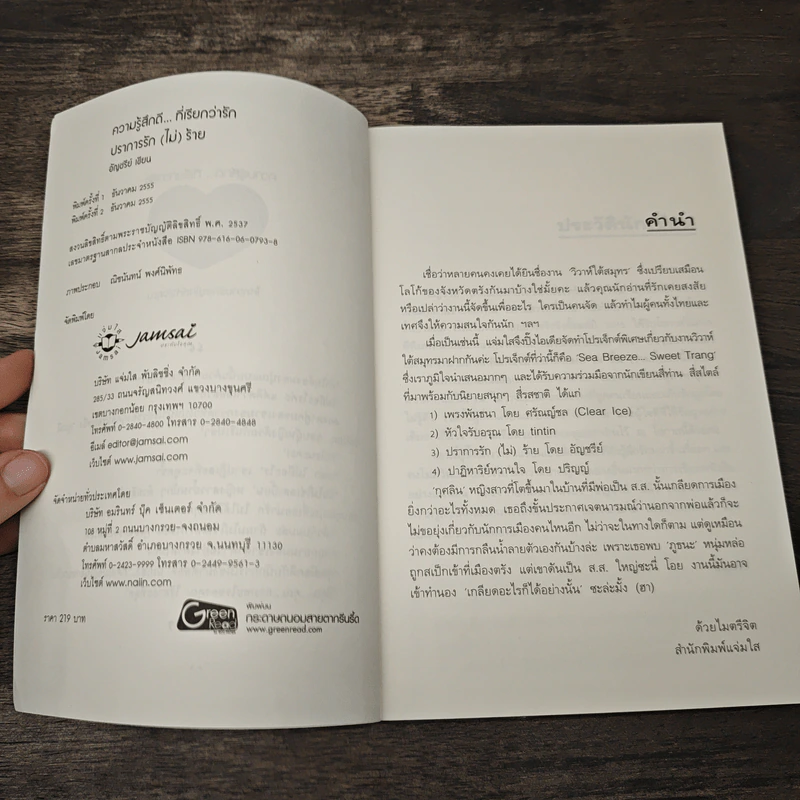 ความรู้สึกดี... ที่เรียกว่ารัก
ปราการรัก (ไม่) ร้าย
อัญชรีย์ เขียน
พิมพ์ครั้งที่ 1 ธันวาคม 2555
พิมพ์ครั้งที่ 2 ธันวาคม 2555
สงวนลิขสิทธิ์ตามพระราชบัญญัติลิขสิทธิ์ พ.ศ. 2537
เลขมาตรฐานสากลประจำหนังสือ ISBN 978-616-06-0793-8
ภาพประกอบ ณิชนันทน์ พงศ์นิพัทธ
จัดพิมพ์โดย
jamsai
บริษัท แจ่มใส พับลิชชิ่ง จำกัด
285/33 ถนนจรัญสนิทวงศ์ แขวงบางขุนศรี
เขตบางกอกน้อย กรุงเทพฯ 10700
โทรศัพท์ 0-2840-4800 โทรสาร 0-2840-4848
อีเมล์ editor@jamsai.com
เว็บไซต์ www.jamsai.com
จัดจำหน่ายทั่วประเทศโดย
บริษัท อมรินทร์ บุ๊ค เซ็นเตอร์ จำกัด
108 หมู่ที่ 2 ถนนบางกรวย-จงถนอม
ตำบลมหาสวัสดิ์ อำเภอบางกรวย จ.นนทบุรี 11130
โทรศัพท์ 0-2423-9999 โทรสาร 0-2449-9561-3
เว็บไซต์ www.naiin.com
ราคา 219 บาท
Green Read
พิมพ์บน
กระดาษถนอมสายตากรีนรี้ด
www.greenread.com
คำนำ
เชื่อว่าหลายคนคงเคยได้ยินชื่องาน 'วิวาห์ใต้สมุทร' ซึ่งเปรียบเสมือน
โลโก้ของจังหวัดตรังกันมาบ้างใช่มั้ยคะ แล้วคุณนักอ่านที่รักเคยสงสัย
หรือเปล่าว่างานนี้จัดขึ้นเพื่ออะไร ใครเป็นคนจัด แล้วทำไมผู้คนทั้งไทยและ
เทศจึงให้ความสนใจกันนัก ฯลฯ
เมื่อเป็นเช่นนี้ แจ่มใสจึงปิ๊งไอเดียจัดทำโปรเจ็กต์พิเศษเกี่ยวกับงานวิวาห์
ใต้สมุทรมาฝากกันค่ะ โปรเจ็กต์ที่ว่านี้ก็คือ 'Sea Breeze... Sweet Trang'
ซึ่งเราภูมิใจนำเสนอมากๆ และได้รับความร่วมมือจากนักเขียนสี่ท่าน สี่สไตล์
ที่มาพร้อมกับนิยายสนุกๆ สี่รสชาติ ได้แก่
1) เพรงพันธนา โดย ศรัณญ์ชล (Clear Ice)
2) หัวใจรับอรุณ โดย tintin
3) ปราการรัก (ไม่) ร้าย โดย อัญชรีย์
4) ปาฏิหาริย์หวานใจ โดย ปริญญ์
'กุศลิน' หญิงสาวที่โตขึ้นมาในบ้านที่มีพ่อเป็น ส.ส. นั้นเกลียดการเมือง
ยิ่งกว่าอะไรทั้งหมด เธอถึงขั้นประกาศเจตนารมณ์ว่านอกจากพ่อแล้วก็จะ
ไม่ขอยุ่งเกี่ยวกับนักการเมืองคนไหนอีก ไม่ว่าจะในทางใดก็ตาม แต่ดูเหมือน
ว่าคงต้องมีการกลืนน้ำลายตัวเองกันบ้างล่ะ เพราะเธอพบ 'ภูธนะ' หนุ่มหล่อ
ถูกสเป็กเข้าที่เมืองตรัง แต่เขาดันเป็น ส.ส. ใหญ่ซะนี่ โอย งานนี้มันอาจ
เข้าทำนอง 'เกลียดอะไรก็ได้อย่างนั้น' ซะล่ะมั้ง (ฮา)
ด้วยไมตรีจิต
สำนักพิมพ์แจ่มใส